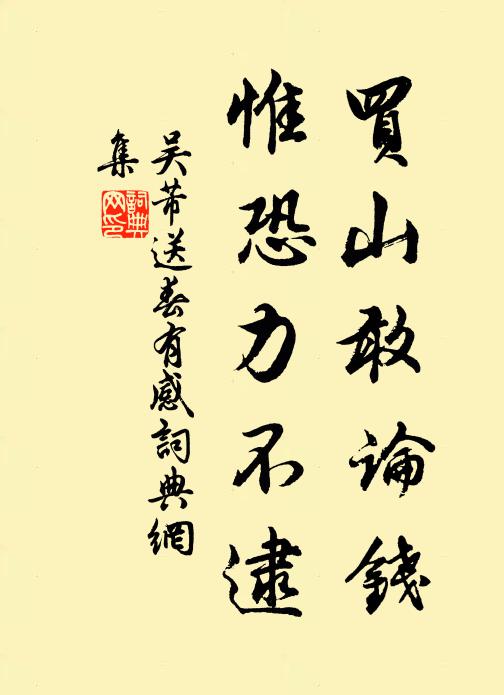 買山敢論錢
惟恐力不逮
吴芾送春有感詞典網
集
詞典
网印